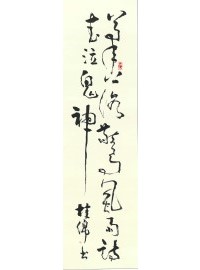 筆落驚風雨詩
成泣鬼神
桂書